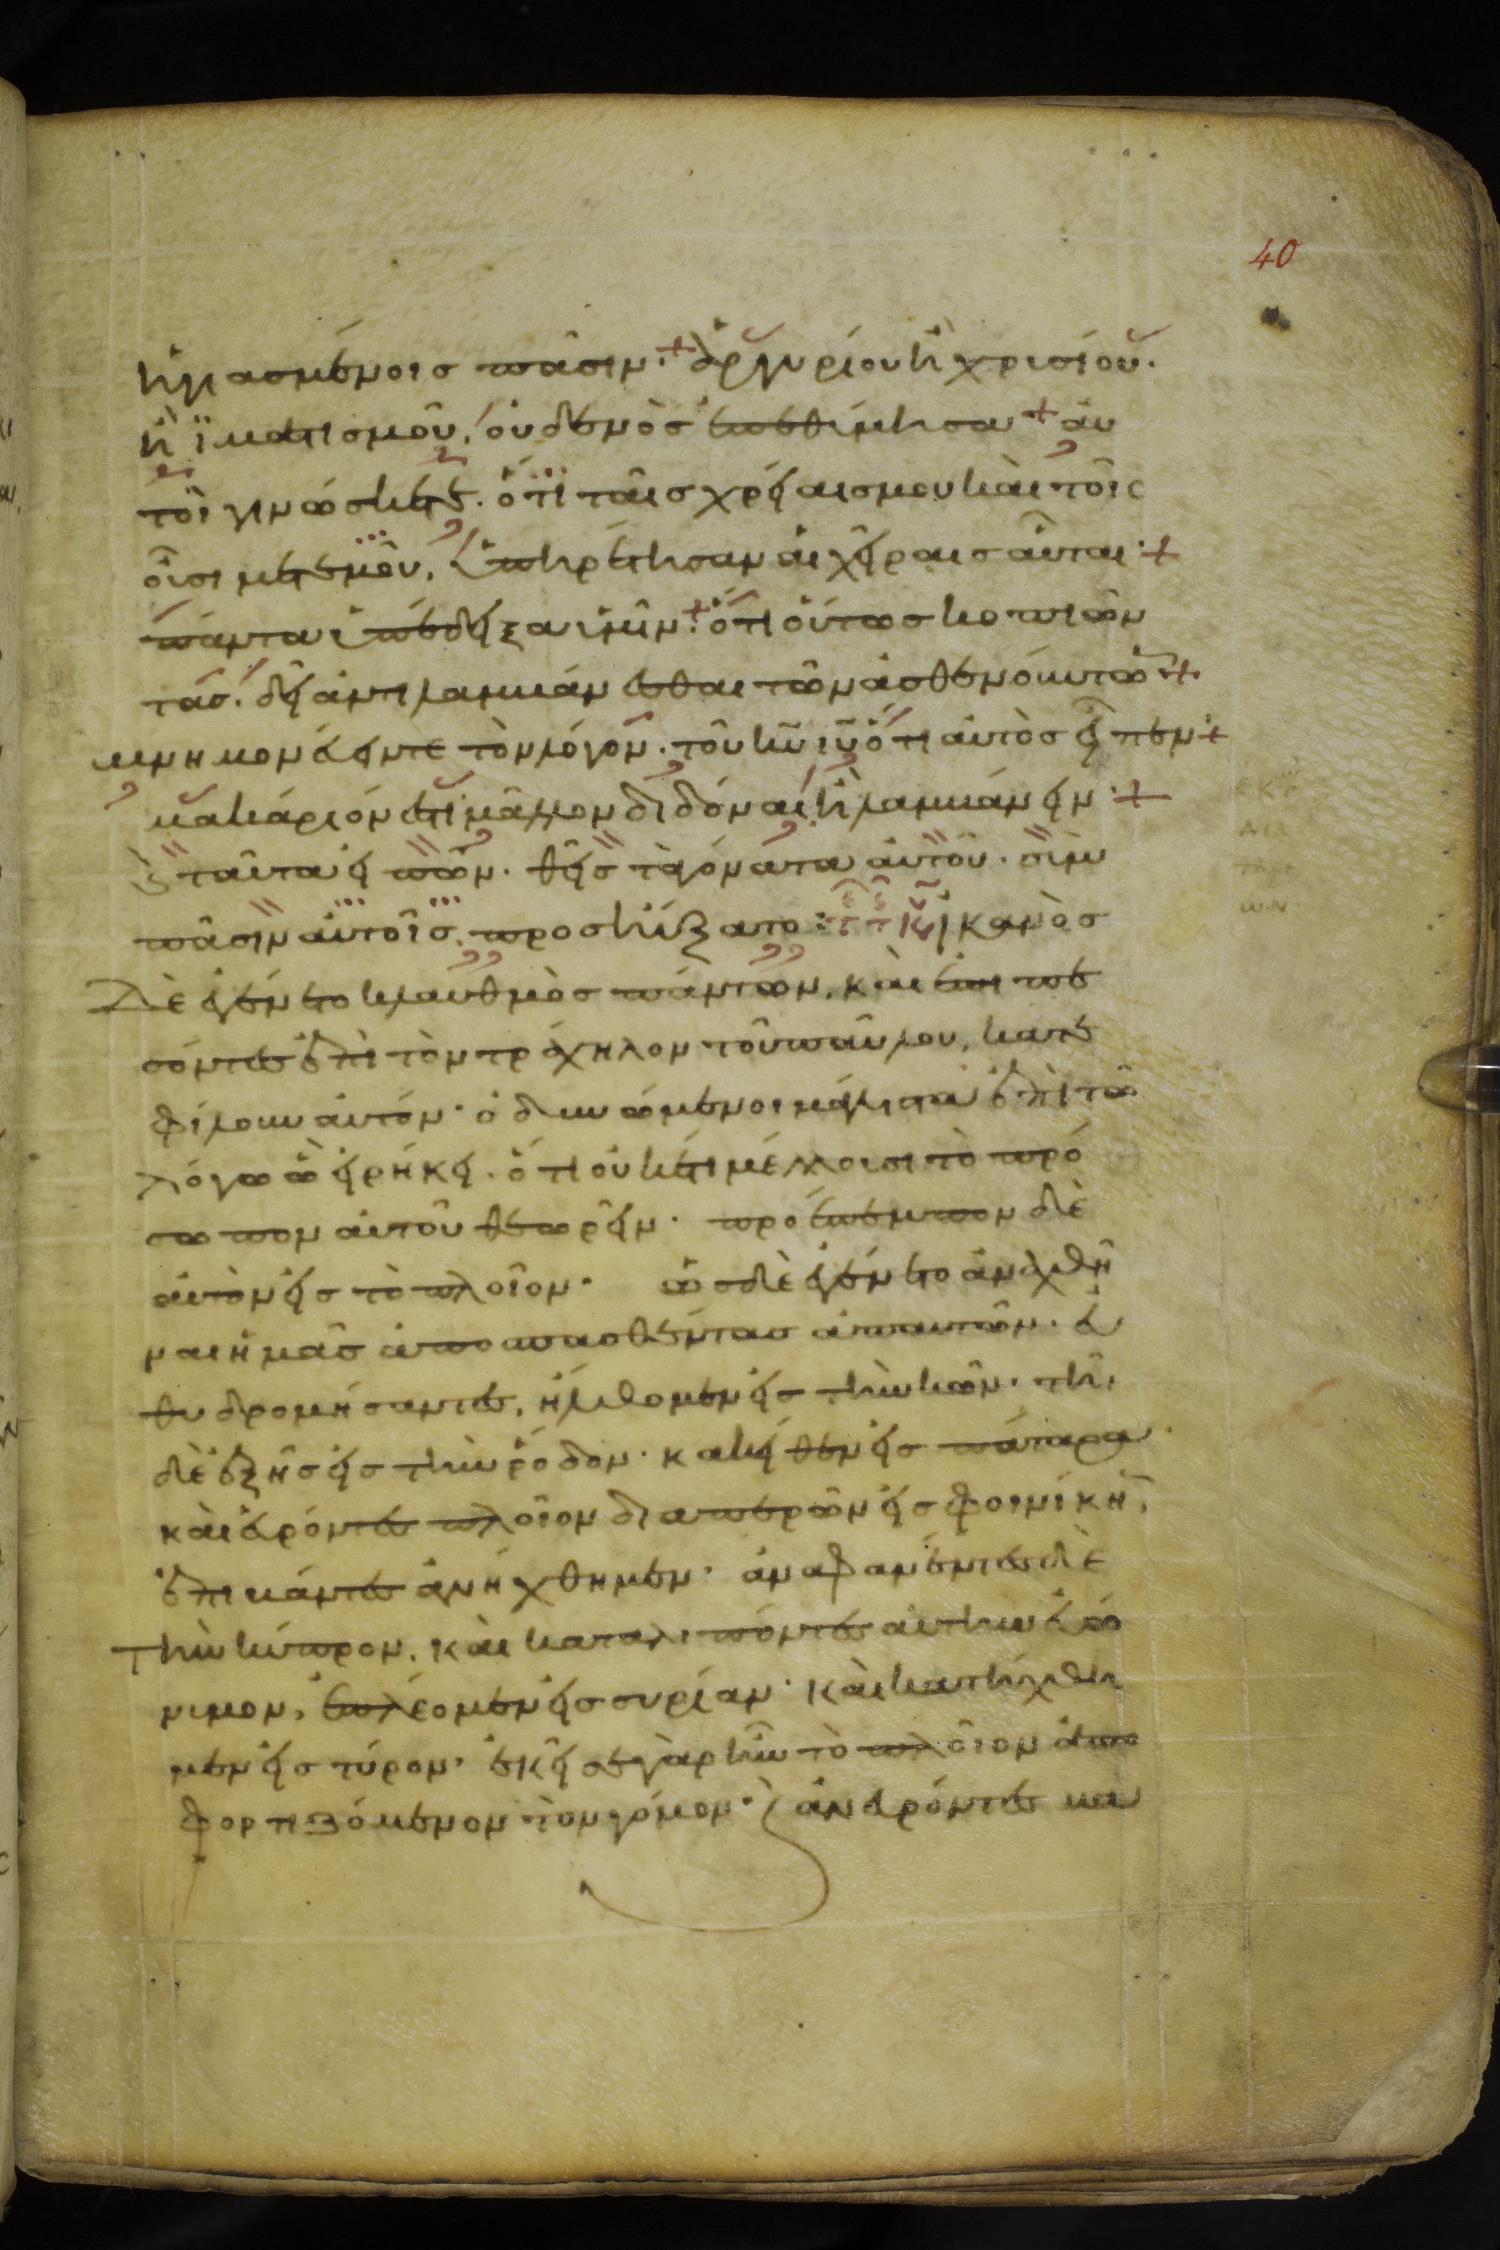 40
ἡγιασμένοις πᾶσιν· ἀργυρίου ἢ χρυσίου·
ἢ ἱματισμοῦ, οὐδενὸς ἐπεθύμησα αὐ
τοὶ γινώσκετε· ὅτι ταῖς χρείαις μου καὶ τοῖς
οὖσι μετ ἐμοῦ, ὑπηρέτησαν αἱ χεῖραις αὗται·
πάντα ὑπέδειξα ὑμῖν· ὅτι οὕτως κοπιῶν
τας· δεῖ ἀντιλαμβάνεσθαι τῶν ἀσθενούντων·
μνημονεύειν τε τὸν λόγον· τοῦ κυ ιυ ὅτι αὐτὸς εἶπεν·
μακάριόν ἐστι μᾶλλον διδόναι ἢ λαμβάνειν·
καὶ ταῦτα εἰπὼν· θεὶς τὰ γόνατα αὐτοῦ· σὺν
πᾶσιν αὐτοῖς προσηύξατο· ἱκανὸς
δὲ ἐγένετο κλαυθμὸς πάντων, καὶ ἐπιπε
σόντες ἐπὶ τὸν τράχηλον τοῦ παύλου, κατε
φίλουν αὐτόν· ὀδυνώμενοι μάλιστα ἐπὶ τῶ
λόγω ὦ εἰρήκει· ὅτι οὐκέτι μέλλουσι τὸ πρό
σωπον αὐτοῦ θεωρεῖν· προέπεμπον δὲ
αὐτὸν εἰς τὸ πλοῖον· ὡς δὲ ἐγένετο ἀναχθῆ
ναι ἡμᾶς ἀποσπασθέντας ἀπ αὐτῶν· εὐ
θυδρομήσαντες, ἤλθομεν εἰς τὴν κῶν· τῆ
δὲ ἑξῆς εἰς τὴν ῥόδον· κἀκεῖθεν εἰς πάταρα
καὶ εὑρόντες πλοῖον διαπερῶν εἰς φοινίκην,
ἐπιβάντες ἀνήχθημεν· ἀναφανέντες δὲ
τὴν κύπρον, καὶ καταλιπόντες αὐτὴν εὐώ
νυμον, ἐπλέομεν εἰς συρίαν· καὶ κατήχθη
μεν εἰς τύρον· ἐκεῖσε γὰρ ἦν τὸ πλοῖον ἀπο
φορτιζόμενον τὸν γόμον· καὶ ἀνευρόντες μα